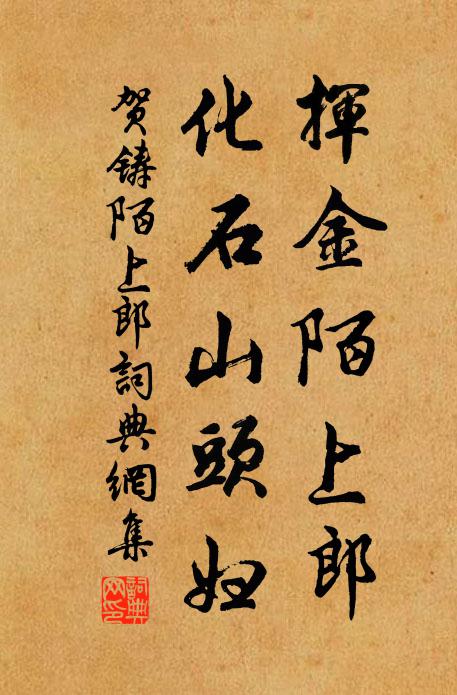 揮金陌上郎
化石山頭婦
賀鑄陌上郎詞典網集
詞典
網印